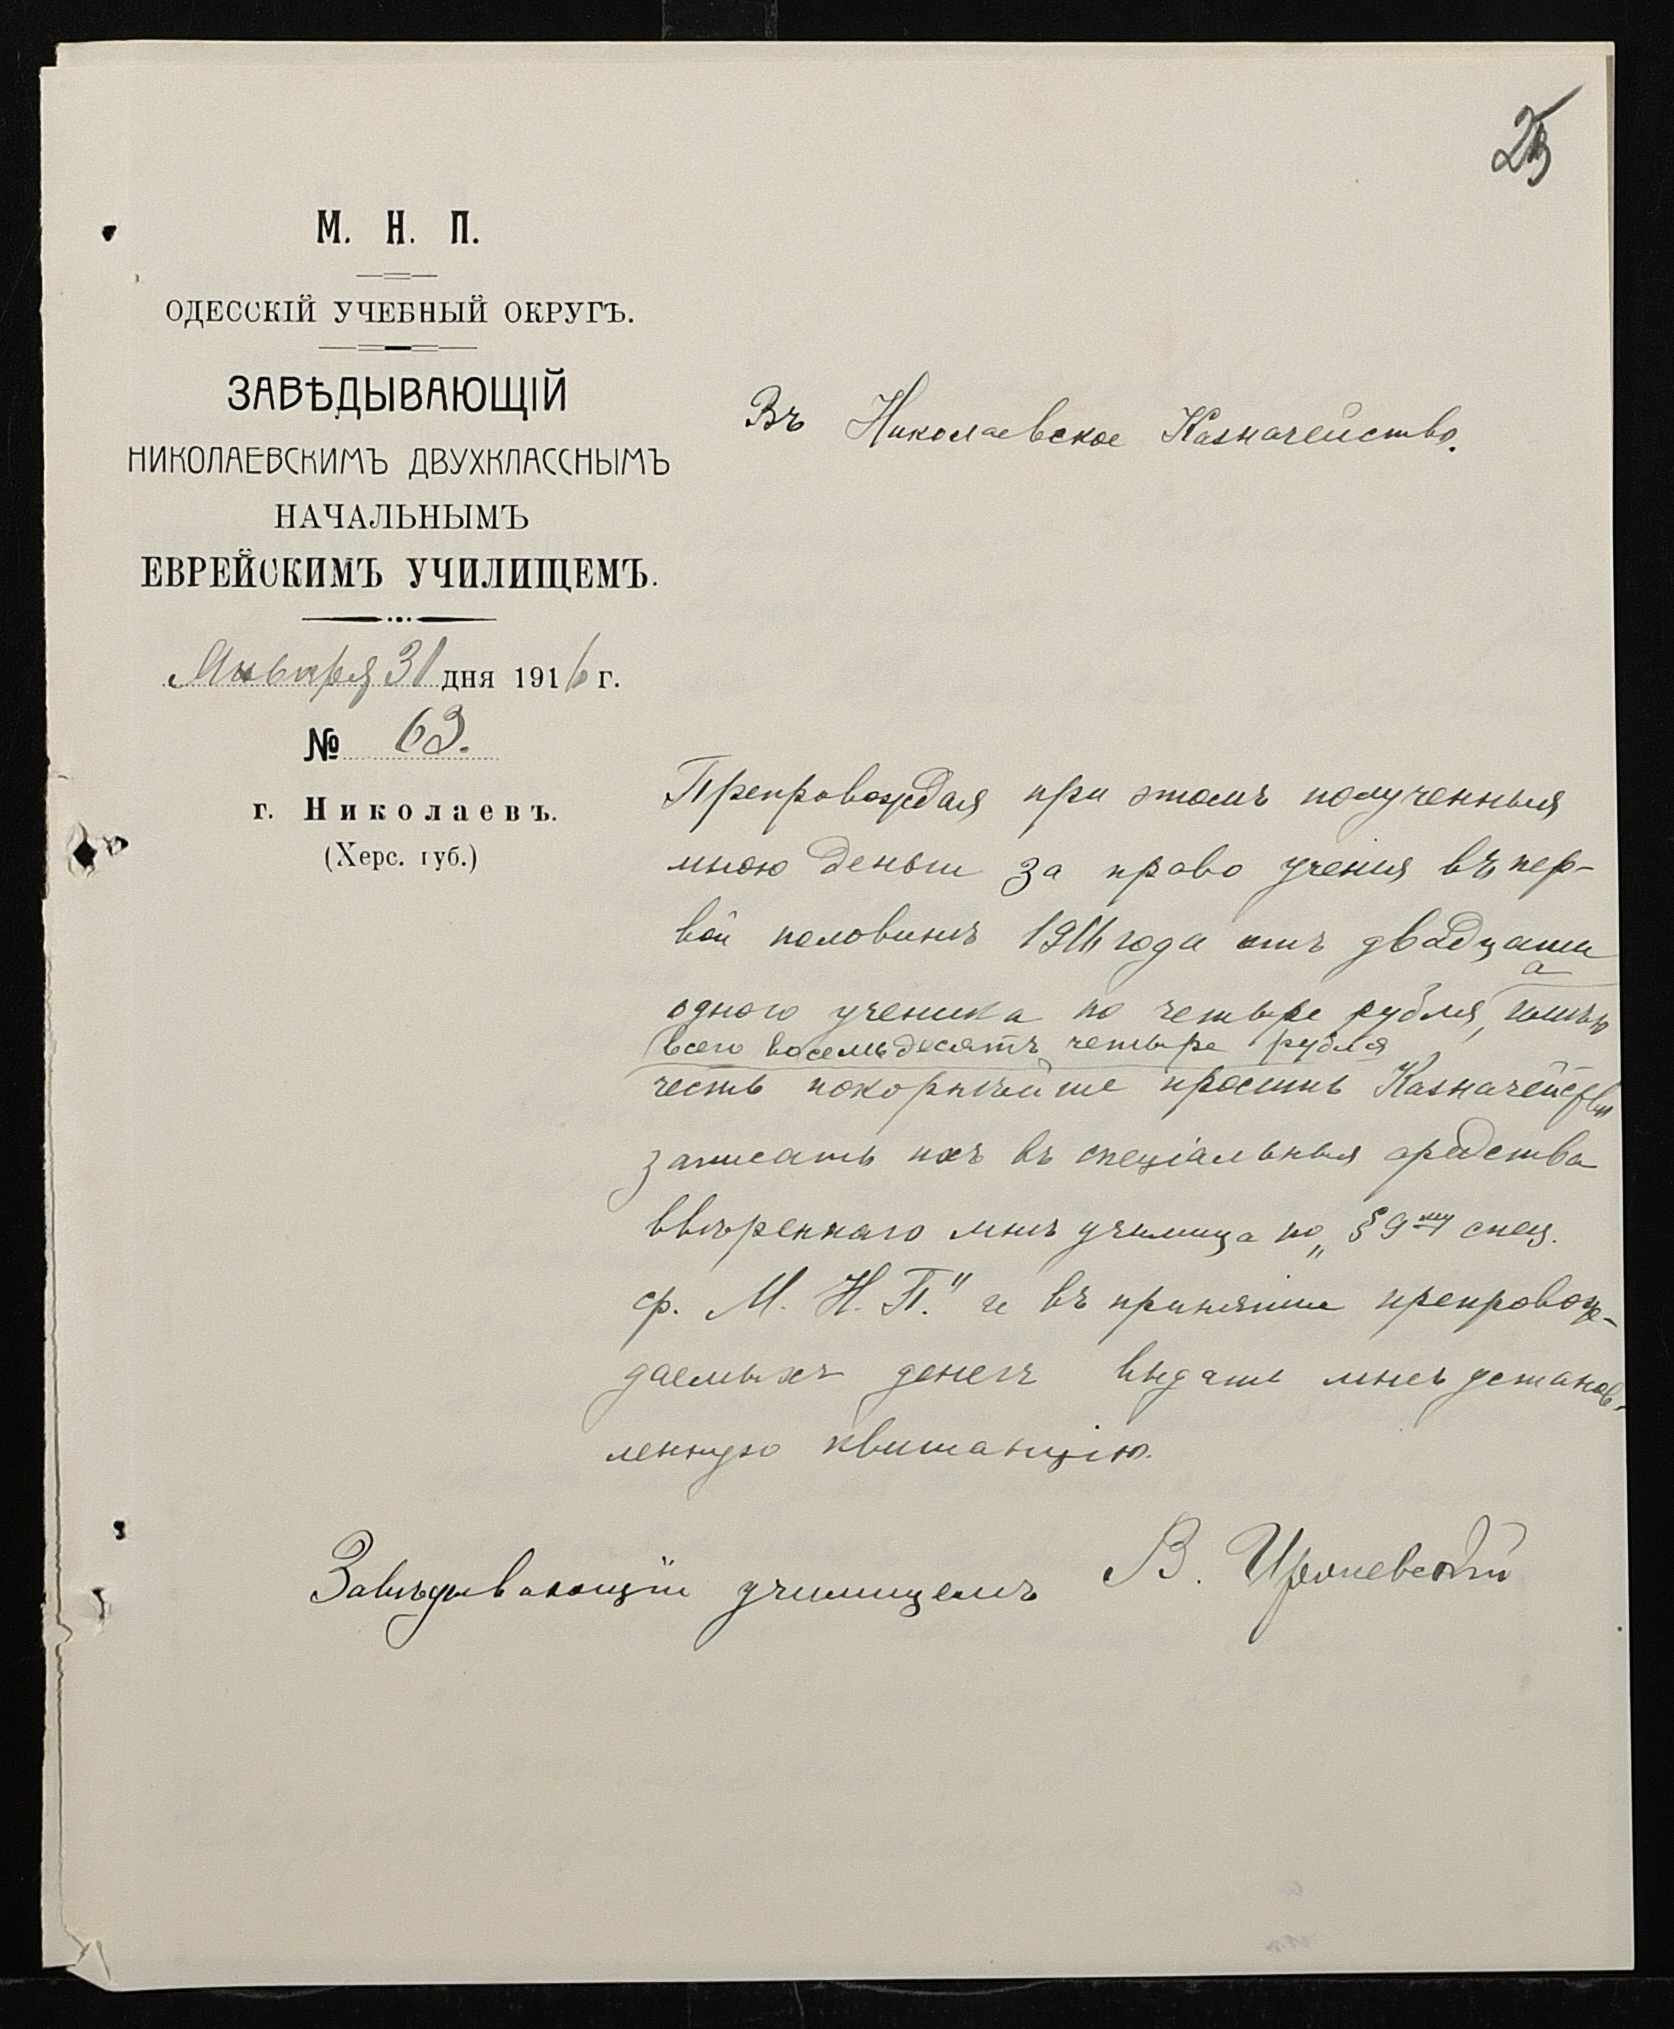 М. Н. П.
ОДЕССКІЙ УЧЕБНЫЙ ОКРУГЪ.
ЗАВѢДЫВАЮЩІЙ
НИКОЛАЕВСКИМЪ ДВУХКЛАССНЫМЪ
НАЧАЛЬНЫМЪ
ЕВРЕЙСКИМЪ УЧИЛИЩЕМЪ.
Января 31 дня 1916 г.
№ 63.
г. Николаевъ.
(Херс. губ.)
Въ Николаевское Казначейство.
Препровождая при этомъ полученныя
мною деньги за право ученія въ пер-
вой половинѣ 1916 года отъ двадцати
одного ученика по четыре рубля, а имѣю
всего восемьдесятъ четыре рубля
честь покорнѣйше просить Казначейство
записать ихъ въ спеціальныя средства
ввѣреннаго мнѣ училища по „§ 9му спец.
ср. М. Н. П." и въ принятіи препровож-
даемыхъ денегъ выдать мнѣ установ-
ленную квитанцію.
Завѣдывающій училищемъ В.